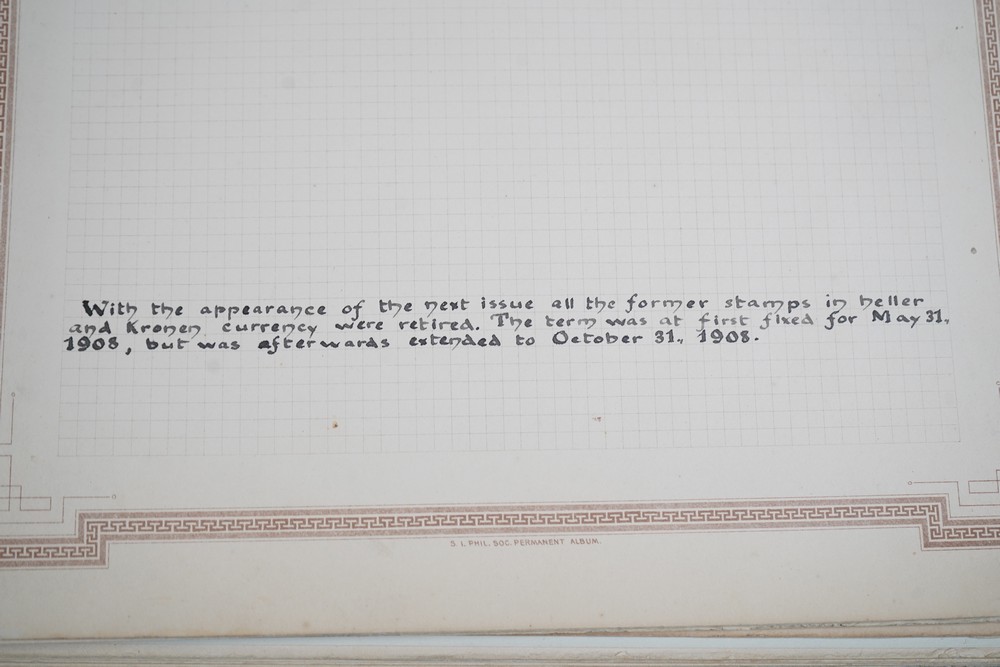 With the appearance of the next issue all the former stamps in heller
and Kronen currency were retired. The term was at first fixed for May 31,
1908, but was afterwards extended to October 31, 1908.
S. I. PHIL. SOC. PERMANENT ALBUM.